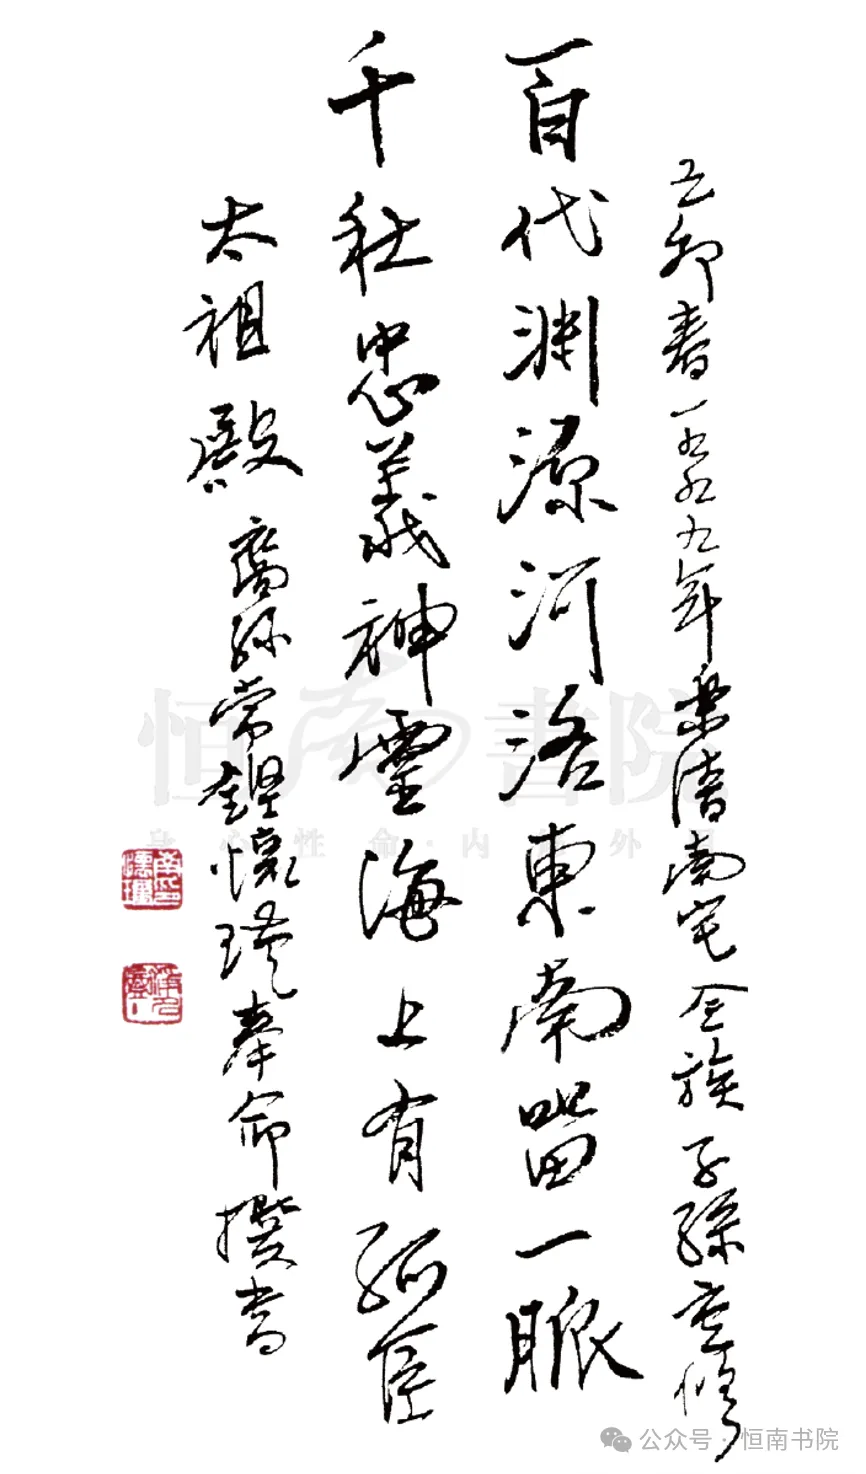 己卯春一九九九年樂清南宅仝族子孫重修
百代淵源河洛東南留一脈
千秋忠義神靈海上有孤臣
太祖殿 裔孫常鏗懷瑾奉命撰書
恒南書院
公众号 · 恒南书院